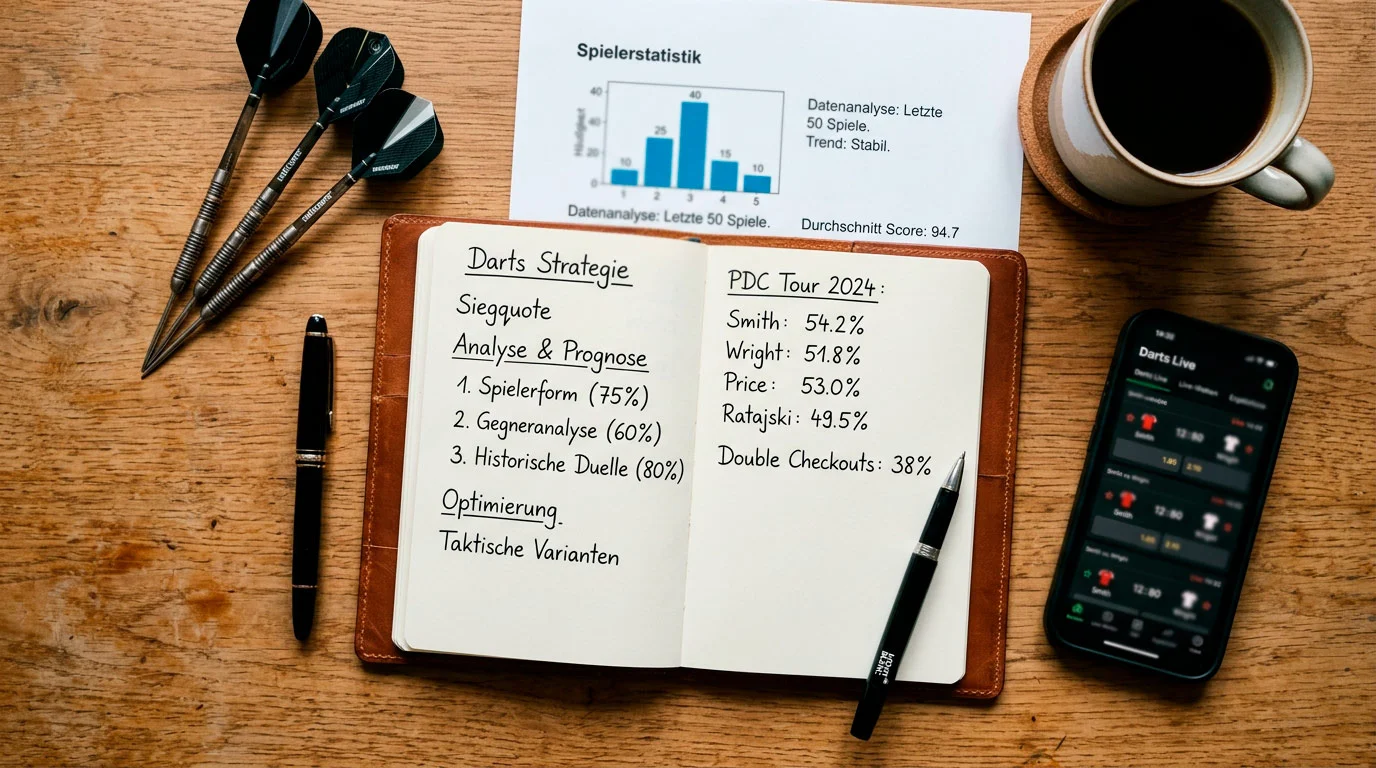 Spielerstatistik
40
40
20
0
Häufigkeit
10
25
40
15
10
1 2 3 4 5
Datenanalyse: Letzte
50 Spiele.
Trend: Stabil.
Datenanalyse: Letzte 50 Spiele.
Durchschnitt Score: 94.7
Darts Strategie
Siegquote
Analyse & Prognose
1. Spielerform (75%)
2. Gegneranalyse (60%)
3. Historische Duelle (80%)
Optimierung
Taktische Varianten
PDC Tour 2024:
Smith: 54.2%
Wright: 51.8%
Price: 53.0%
Ratajski: 49.5%
Double Checkouts: 38%
Darts Live
Darts Live
12:80
Smith
1.85 2.10
12:80
Smith
12:80
Smith